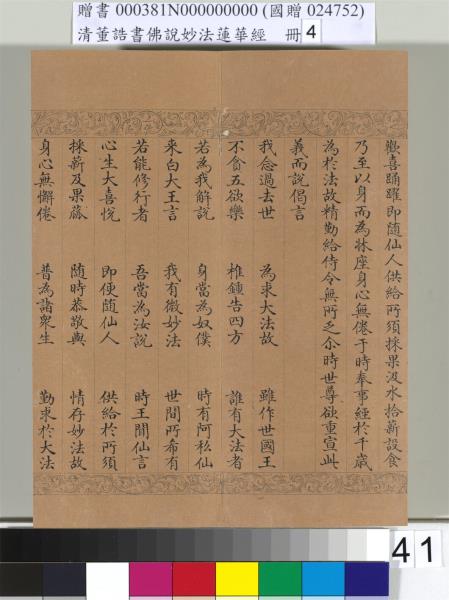 贈書 000381N000000000 (國贈 024752)
清董誥書佛說妙法蓮華經 冊 4
歡喜踊躍即隨仙人供給所須採果汲水拾薪設食
乃至以身而為牀座身心無倦于時奉事經於千歲
為於法故精勤給侍令無所乏尒時世尊欲重宣此
義而說偈言
我念過去世 為求大法故 雖作世國王
不貪五欲樂 椎鍾告四方 誰有大法者
若為我解說 身當為奴僕 時有阿私仙
來白大王言 我有微妙法 世間所希有
若能修行者 吾當為汝說 時王聞仙言
心生大喜悅 即便隨仙人 供給於所須
採薪及果蓏 隨時恭敬與 情存妙法故
身心無懈倦 普為諸眾生 勤求於大法
41